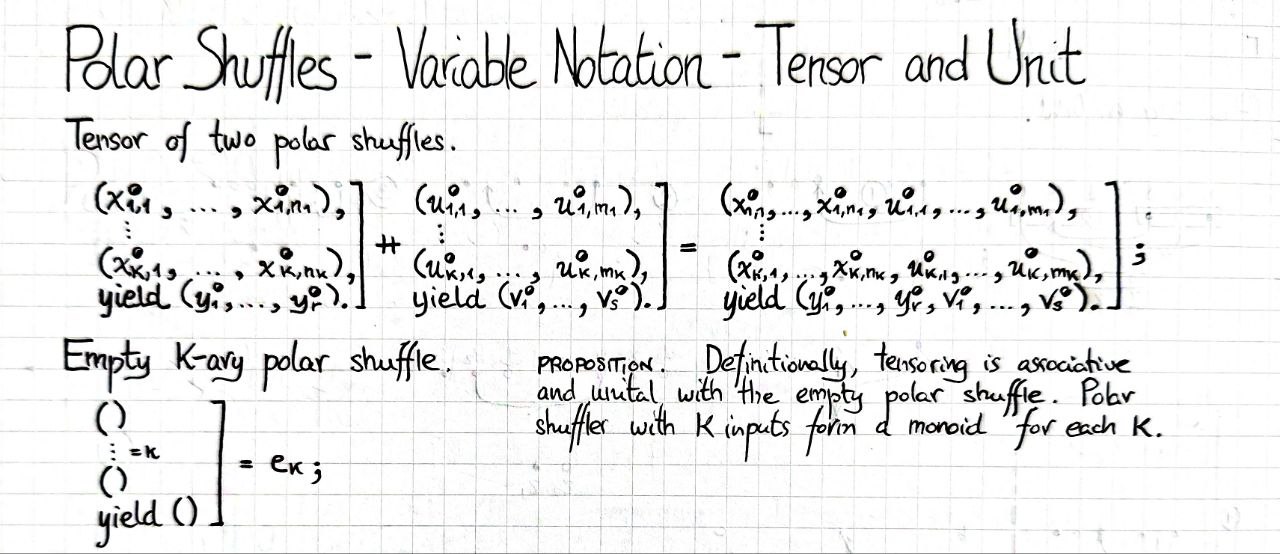 Polar Shuffles - Variable Notation - Tensor and Unit
Tensor of two polar shuffles.
(x°₁,₁, ..., x°₁,n₁), ] ⧺ (u°₁,₁, ..., u°₁,m₁), ] = (x°₁,₁, ..., x°₁,n₁, u°₁,₁, ..., u°₁,m₁), ] ;
⋮ ⋮ ⋮
(x°ₖ,₁, ..., x°ₖ,nₖ), (u°ₖ,₁, ..., u°ₖ,mₖ), (x°ₖ,₁, ..., x°ₖ,nₖ, u°ₖ,₁, ..., u°ₖ,mₖ),
yield (y°₁, ..., y°ᵣ). yield (v°₁, ..., v°ₛ). yield (y°₁, ..., y°ᵣ, v°₁, ..., v°ₛ).
Empty K-ary polar shuffle.
()
⋮ =k
()
yield () ] = eₖ ;
PROPOSITION. Definitionally, tensoring is associative
and unital with the empty polar shuffle. Polar
shuffler with K inputs form a monoid for each K.